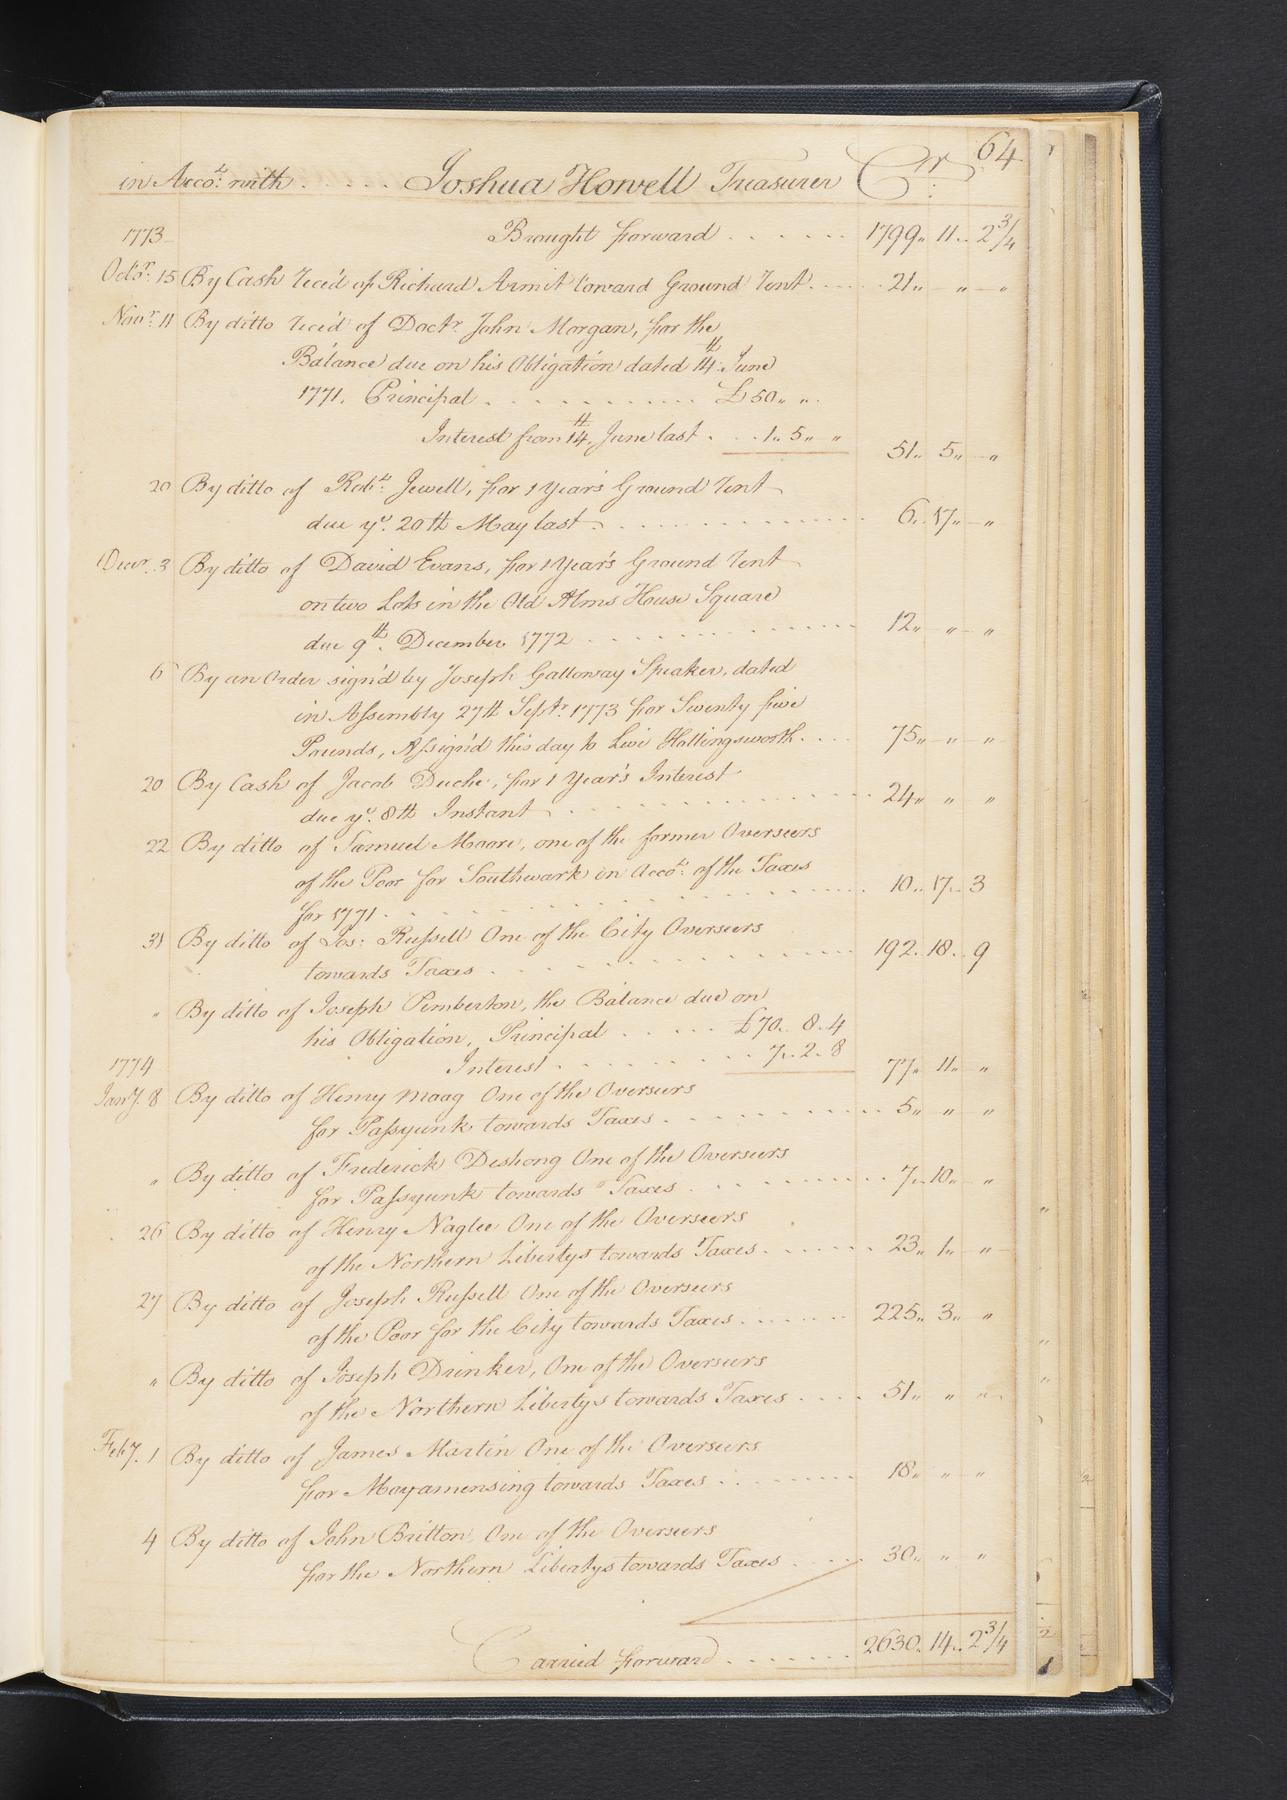 64
in Acco.t with . . . . . Joshua Howell Treasurer Cr
1773 Brought forward . . . . . . 1799.. 11.. 2 3/4
Octo.r 15 By Cash rece'd of Richard Armit toward Ground rent . . . . . 21.. — " — "
Nov.r 11 By ditto rece'd of Doct.r John Morgan, for the
Balance due on his Obligation dated 14.th June
1771. Principal . . . . . . . . . . £50.. "
Interest from 14.th June last . . . 1.. 5.. " 51.. 5.. "
20 By ditto of Rob.t Jewell, for 1 Year's Ground rent
due y.e 20th May last . . . . . . . . . . 6.. 17.. "
Decr. 3 By ditto of David Evans, for 1 Year's Ground rent
on two Lots in the Old Alms House Square
due 9.th December 1772 . . . . . . . . . . 12.. " "
6 By an Order sign'd by Joseph Galloway Speaker, dated
in Assembly 27th Sept.r 1773 for Seventy five
Pounds, Assign'd this day to Levi Hollingsworth . . . . 75.. " "
20 By Cash of Jacob Duche, for 1 Year's Interest
due y.e 8th Instant . . . . . . . . . . 24.. " "
22 By ditto of Samuel Moore, one of the former Overseers
of the Poor for Southwark in Acco.t of the Taxes
for 1771 . . . . . . . . . . 10.. 17.. 3
31 By ditto of Jos: Russell One of the City Overseers
towards Taxes . . . . . . . . . . 192.. 18.. 9
" By ditto of Joseph Pemberton, the Balance due on
his Obligation, Principal . . . . . £70.. 8.. 4
1774 Interest . . . . . . . . 7.. 2.. 8 77.. 11.. "
Jany. 8 By ditto of Henry Maag One of the Overseers
for Passyunk towards Taxes . . . . . . . . . 5.. " "
" By ditto of Frederick Deshong One of the Overseers
for Passyunk towards Taxes . . . . . . . . 7.. 10.. "
26 By ditto of Henry Naglee One of the Overseers
of the Northern Libertys towards Taxes . . . . . . . 23.. 1.. "
27 By ditto of Joseph Russell One of the Overseers
of the Poor for the City towards Taxes . . . . . . . 225.. 3.. "
" By ditto of Joseph Drinker, One of the Overseers
of the Northern Libertys towards Taxes . . . . 51.. " "
Feby. 1 By ditto of James Martin One of the Overseers
for Moyamensing towards Taxes . . . . . . . . 18.. " "
4 By ditto of John Britton, One of the Overseers
for the Northern Libertys towards Taxes . . . . . 30.. " "
Carried forward . . . . . . . 2630.. 14.. 2 3/4